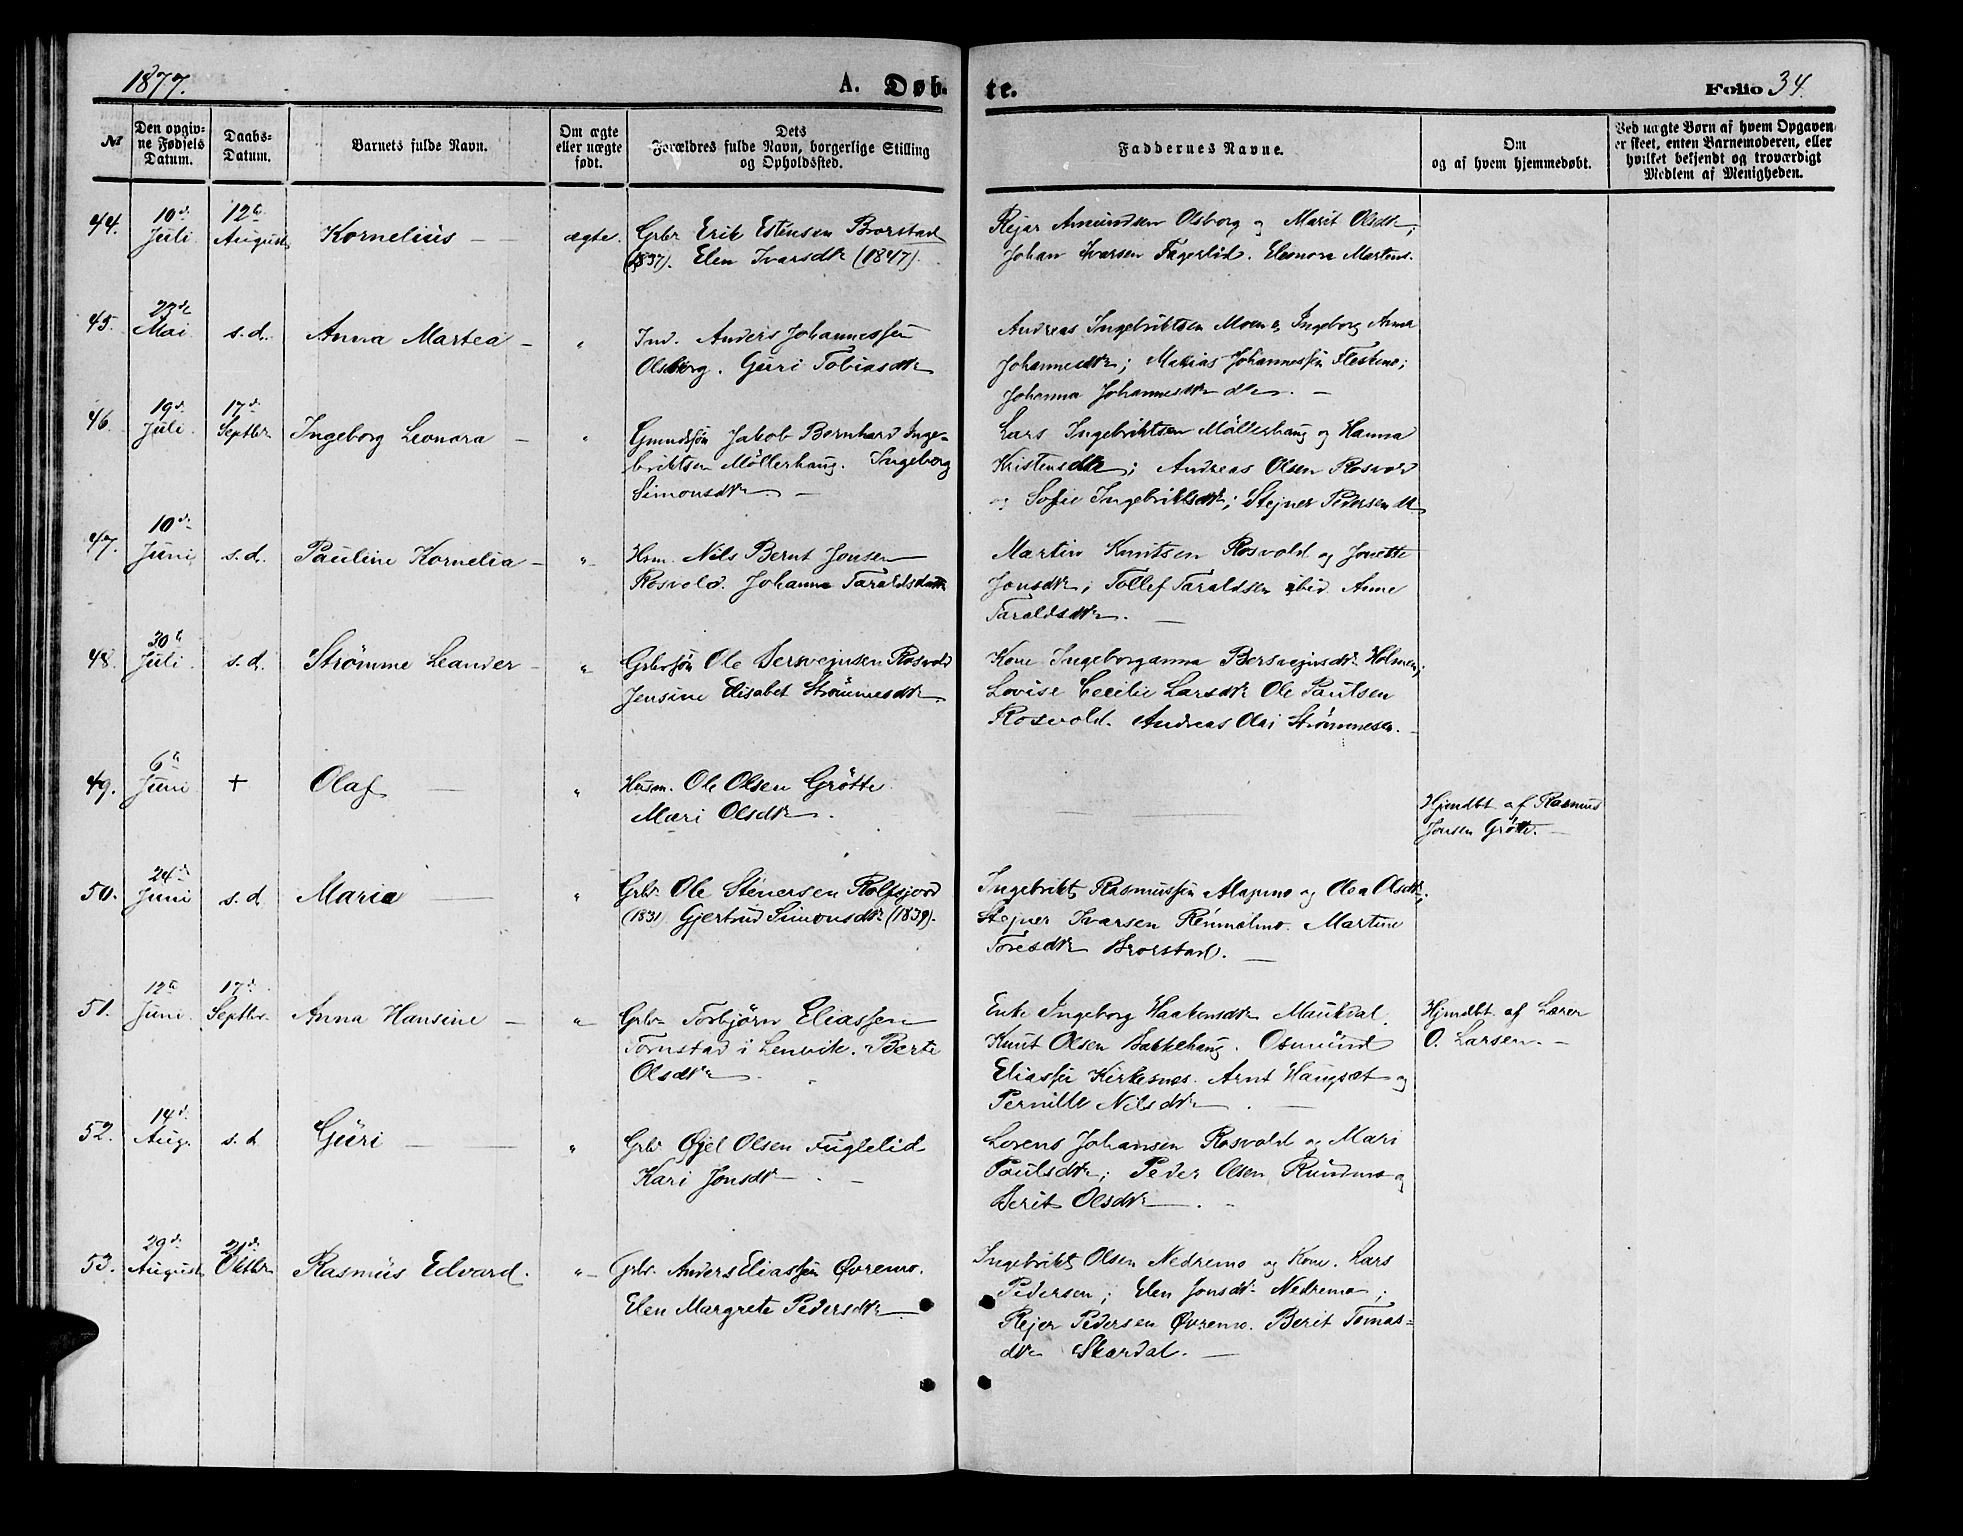 1877. A. Døb- te. Folio 34.
№ Den opgivne Fødsels Datum. Daabs-Datum. Barnets fulde Navn. Om ægte eller uægte født. Dets Forældres fulde Navn, borgerlige Stilling og Opholdssted. Faddernes Navne. Om og af hvem hjemmedøbt. Ved uægte Børn af hvem Opgaven er skeet, enten Barnemoderen, eller hvilket bekjendt og troværdigt Medlem af Menigheden.
44. 10de Juli 12te August Kornelius — ægte. Grbr Erik Estensen Brorstad
(1837). Elen Ivarsdtr (1847).
Rejar Amundsen Olsborg og Marit Olsdtr;
Johan Ivarsen Fagerlid. Eleonora Martens.
45. 23de Mai s.d. Anna Martea — " Ind. Anders Johannessen
Olsborg. Guri Tobiasdtr
Andreas Ingebriktsen Moen og Ingeborg Anna
Johannesdtr; Johannessen
Johanna Johannesdtr
46. 19de Juli 17de Septbr Ingeborg Leonora — " Gmandssøn Jakob Bernhard Inge-
briktsen Möllerhaug. Ingeborg
Simonsdtr. —
Lars Ingebriktsen Möllerhaug og Hanna
Kristensdtr; Andreas Olsen Rosvold
og Sofie Ingebriktsdtr; Stejner Pedersen
47. 10de Juni s.d. Pauline Kornelia — " Hsm. Nils Bernt Jonsen
Rosvold. Johanna Taraldsdatter
Martin Knutsen Rosvold og Jonette
Jonsdtr; Tollef Taraldsen ibid. Anne
Taraldsdtr. —
48. 30te Juli s.d. Strømme Leander — " Grbrsøn Ole Bersvejnsen Rosvold
Jensine Elisabet Strömmesdtr
Kone Ingeborganna Bersvejnsdtr Holmen;
Lovise Cecilie Larsdtr Ole Paulsen
Rosvold. Andreas Olai Strömmesen.
49. 6te Juni + Olaf — " Husm. Ole Olsen Grötte
Mari Olsdtr.
Hjmdbt af Rasmus
Jonsen Grötte. —
50. 24de Juni s.d. Maria — " Grbr Ole Stenersen Rolfsjord
(1831) Gjertrud Simonsdtr (1839).
Ingebrikt Rasmussen Alapmo og Olea Olsdtr;
Stejner Ivarsen Römmelmo. Martine
Toresdtr Brorstad. —
51. 12te Juni 17de Septbr. Anna Hansine — " Grbr Torbjörn Eliassen
Tornstad i Lenvik. Berte
Olsdtr.
Enke Ingeborg Haakensdtr Maukdal.
Knut Olsen Bakkehaug. Osmund
Eliassen Kirkesnes. Arnt Haugsæt og
Pernille Nilsdtr. —
Hjmdbt af Lærer
O. Larsen. —
52. 14de Aug. s.d. Guri — " Grbr Øjel Olsen Fuglelid
Kari Jonsdtr. —
Lorens Johansen Rosvold og Mari
Paulsdtr; Peder Olsen Rundmo og
Berit Olsdtr.
53. 29de August 21de Oktbr Rasmus Edvard. " Grbr. Anders Eliassen Øvremo.
Elen Margrete Pedersdtr.
Ingebrikt Olsen Nedremo og Kone. Lars
Pedersen; Elen Jonsdtr Nedremo;
Rejer Pedersen Øvremo. Berit Tomas-
dtr Skardal. —